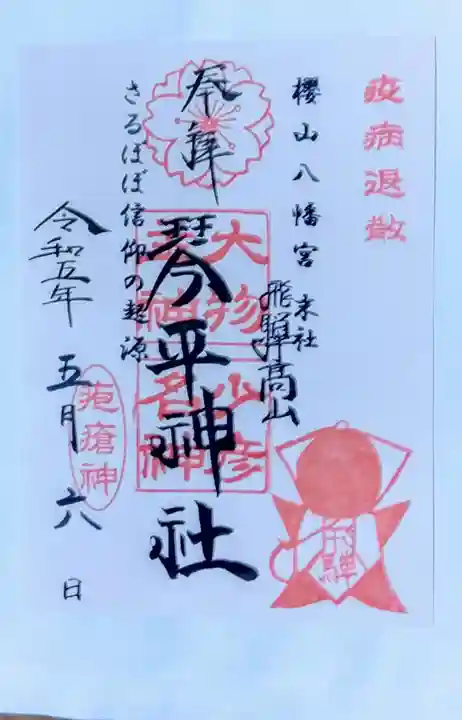 疫病退散
櫻山八幡宮 末社
飛騨高山
奉拝
琴平神社
大物主神
少彦名神
さるぼぼ信仰の起源
疱瘡神
令和五年 五月 六日
飛騨